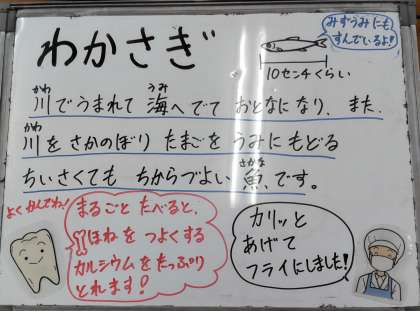 わかさぎ
みずうみにも、
すんでいるよ!
10センチくらい
川でうまれて 海へでて おとなになり、また、
かわ うみ
川を さかのぼり たまごを うみにもどる
かわ
ちいさくても ちからづよい 魚、です。
さかな
よくかんでね!
まるごと たべると、
ほねを つよくする
カルシウムを たっぷり
とれます!
カリッと
あげて
フライにしました!